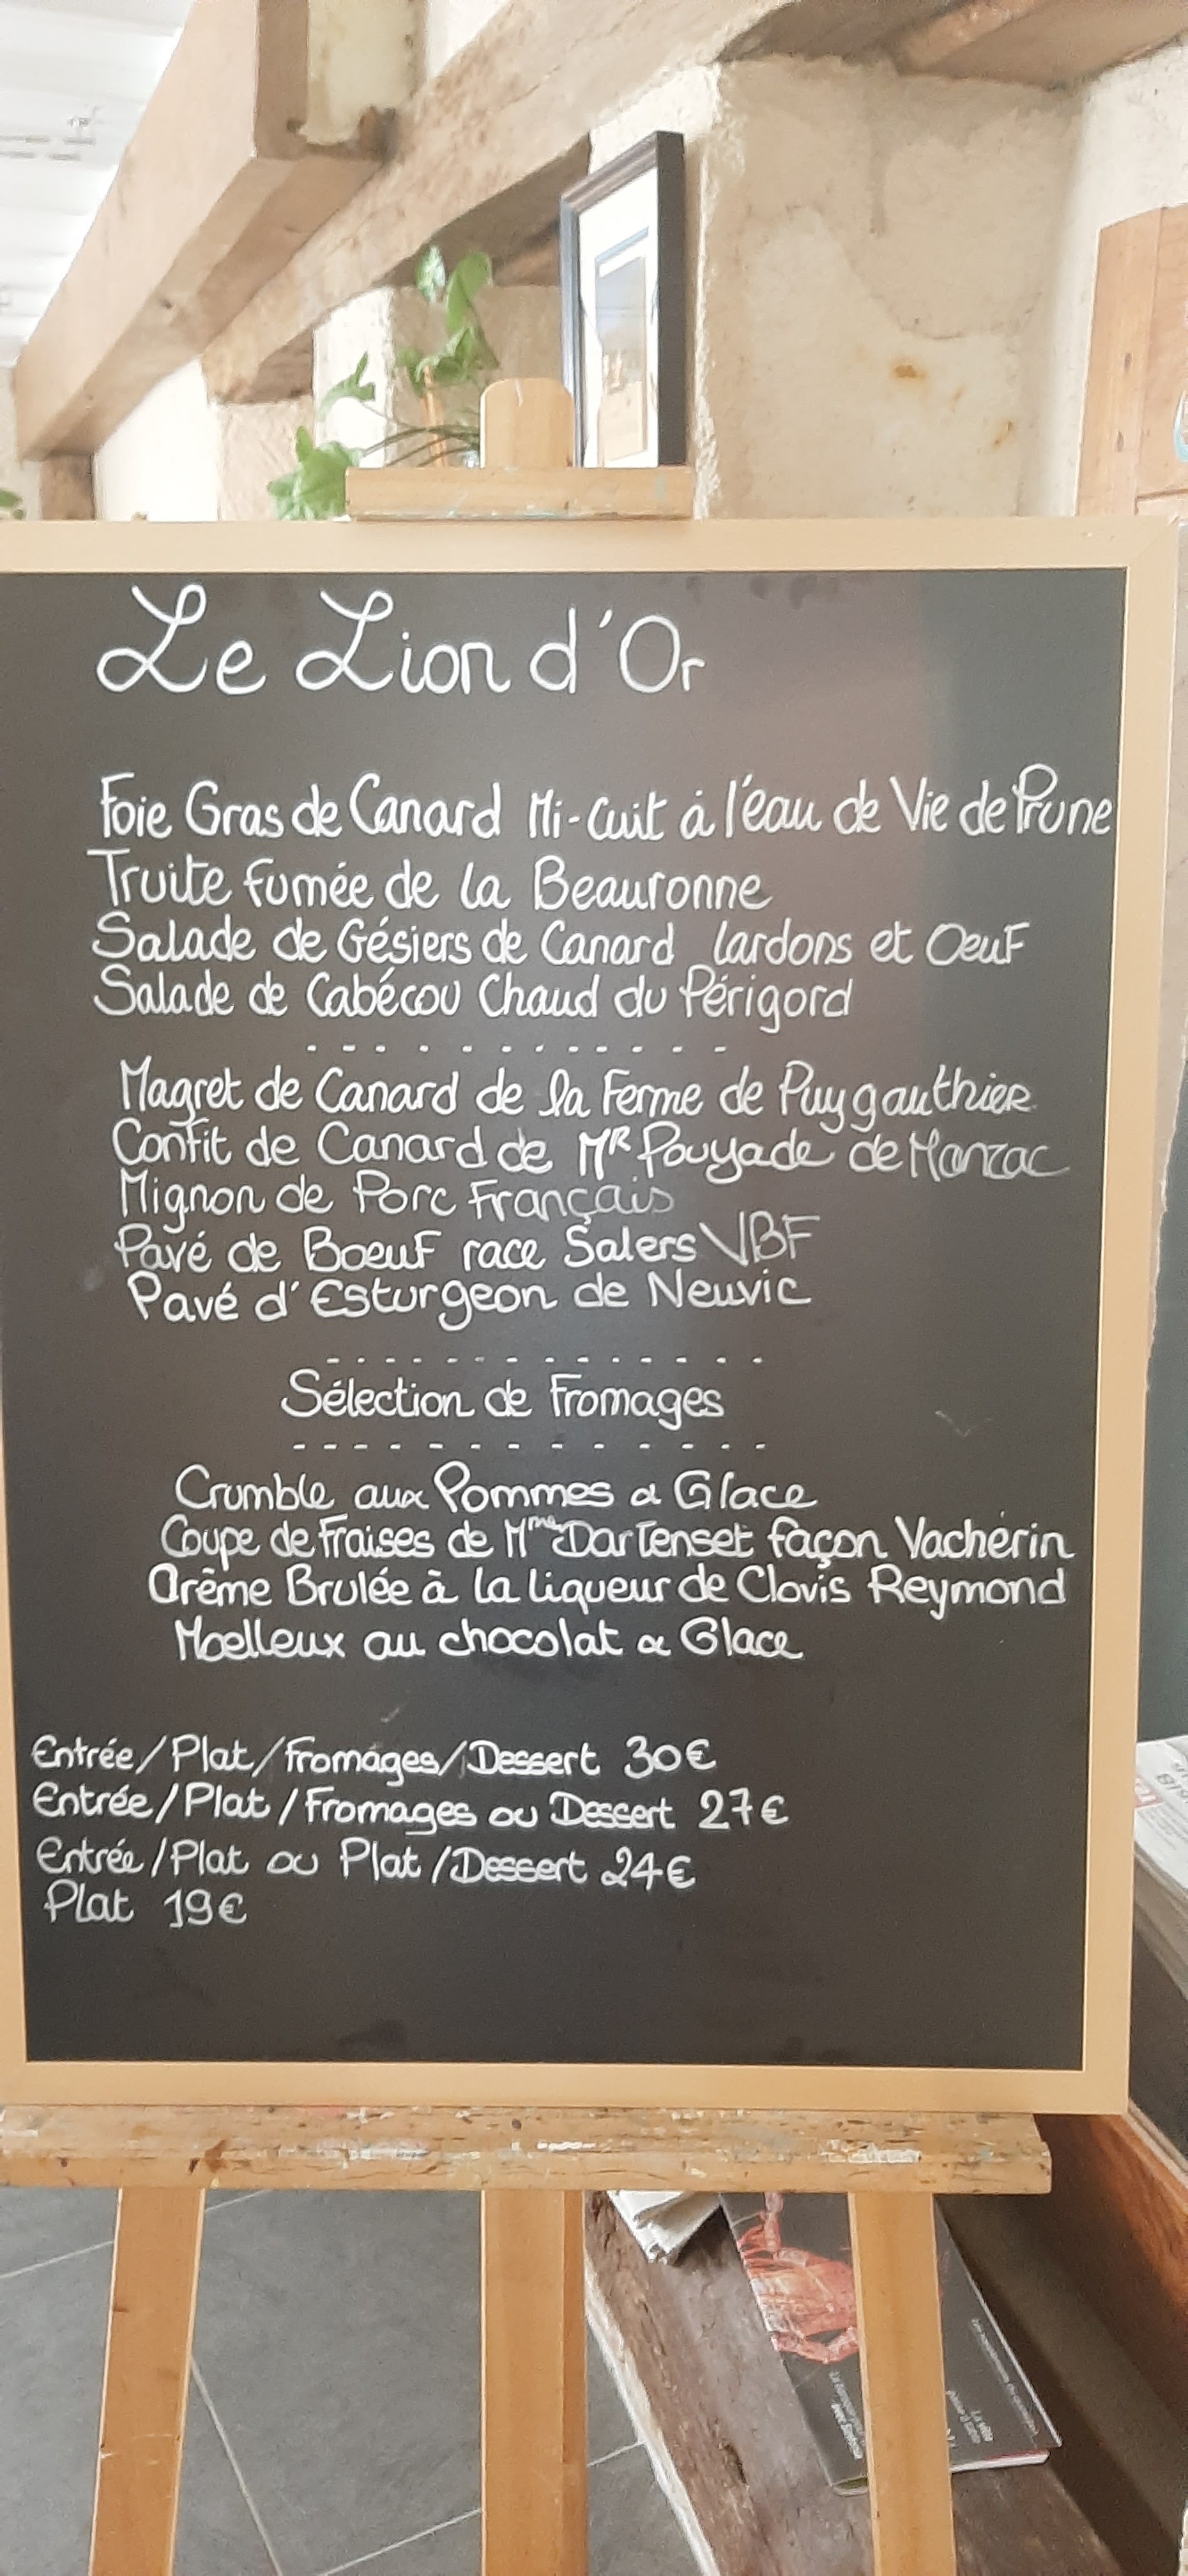 Le Lion d'Or
Foie Gras de Canard Mi-Cuit à l'eau de Vie de Prune
Truite fumée de la Beauronne
Salade de Gésiers de Canard lardons et Oeuf
Salade de Cabécou Chaud du Périgord
Magret de Canard de la Ferme de Puygauthier
Confit de Canard de Mr Pouyade de Manzac
Mignon de Porc Français
Pavé de Boeuf race Salers VBF
Pavé d'Esturgeon de Neuvic
Sélection de Fromages
Crumble aux Pommes & Glace
Coupe de Fraises de Mme Dartenset façon Vacherin
Crême Brulée à la liqueur de Clovis Reymond
Moelleux au chocolat & Glace
Entrée/Plat/Fromages/Dessert 30€
Entrée/Plat/Fromages ou Dessert 27€
Entrée/Plat ou Plat/Dessert 24€
Plat 19€